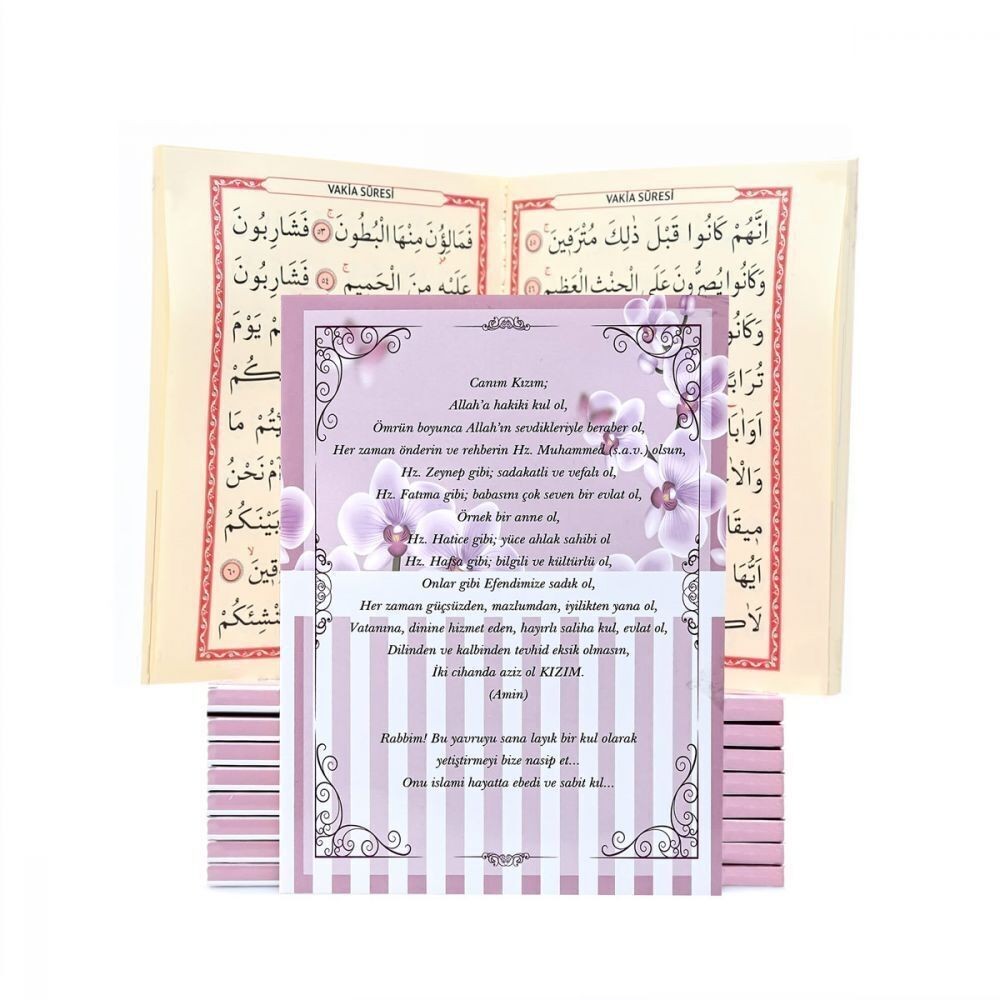 VAKİA SÛRESİ
اِنَّهُمْ كَانُوا قَبْلَ ذٰلِكَ مُتْرَفٖينَ ٤٥
وَكَانُوا يُصِرُّونَ عَلَى الْحِنْثِ الْعَظٖيمِ ٤٦
وَكَانُوا
VAKİA SÛRESİ
فَمَالِؤُنَ مِنْهَا الْبُطُونَ ٥٣ فَشَارِبُونَ
عَلَيْهِ مِنَ الْحَمٖيمِ ٥٤ فَشَارِبُونَ
يَوْمَ
مَا
نَحْنُ
بَيْنَكُمُ
٦٠
Canım Kızım;
Allah'a hakiki kul ol,
Ömrün boyunca Allah'ın sevdikleriyle beraber ol,
Her zaman önderin ve rehberin Hz. Muhammed (s.a.v.) olsun,
Hz. Zeynep gibi; sadakatli ve vefalı ol,
Hz. Fatıma gibi; babasını çok seven bir evlat ol,
Örnek bir anne ol,
Hz. Hatice gibi; yüce ahlak sahibi ol
Hz. Hafsa gibi; bilgili ve kültürlü ol,
Onlar gibi Efendimize sadık ol,
Her zaman güçsüzden, mazlumdan, iyilikten yana ol,
Vatanına, dinine hizmet eden, hayırlı saliha kul, evlat ol,
Dilinden ve kalbinden tevhid eksik olmasın,
İki cihanda aziz ol KIZIM.
(Amin)
Rabbim! Bu yavruyu sana layık bir kul olarak
yetiştirmeyi bize nasip et...
Onu islami hayatta ebedi ve sabit kıl...